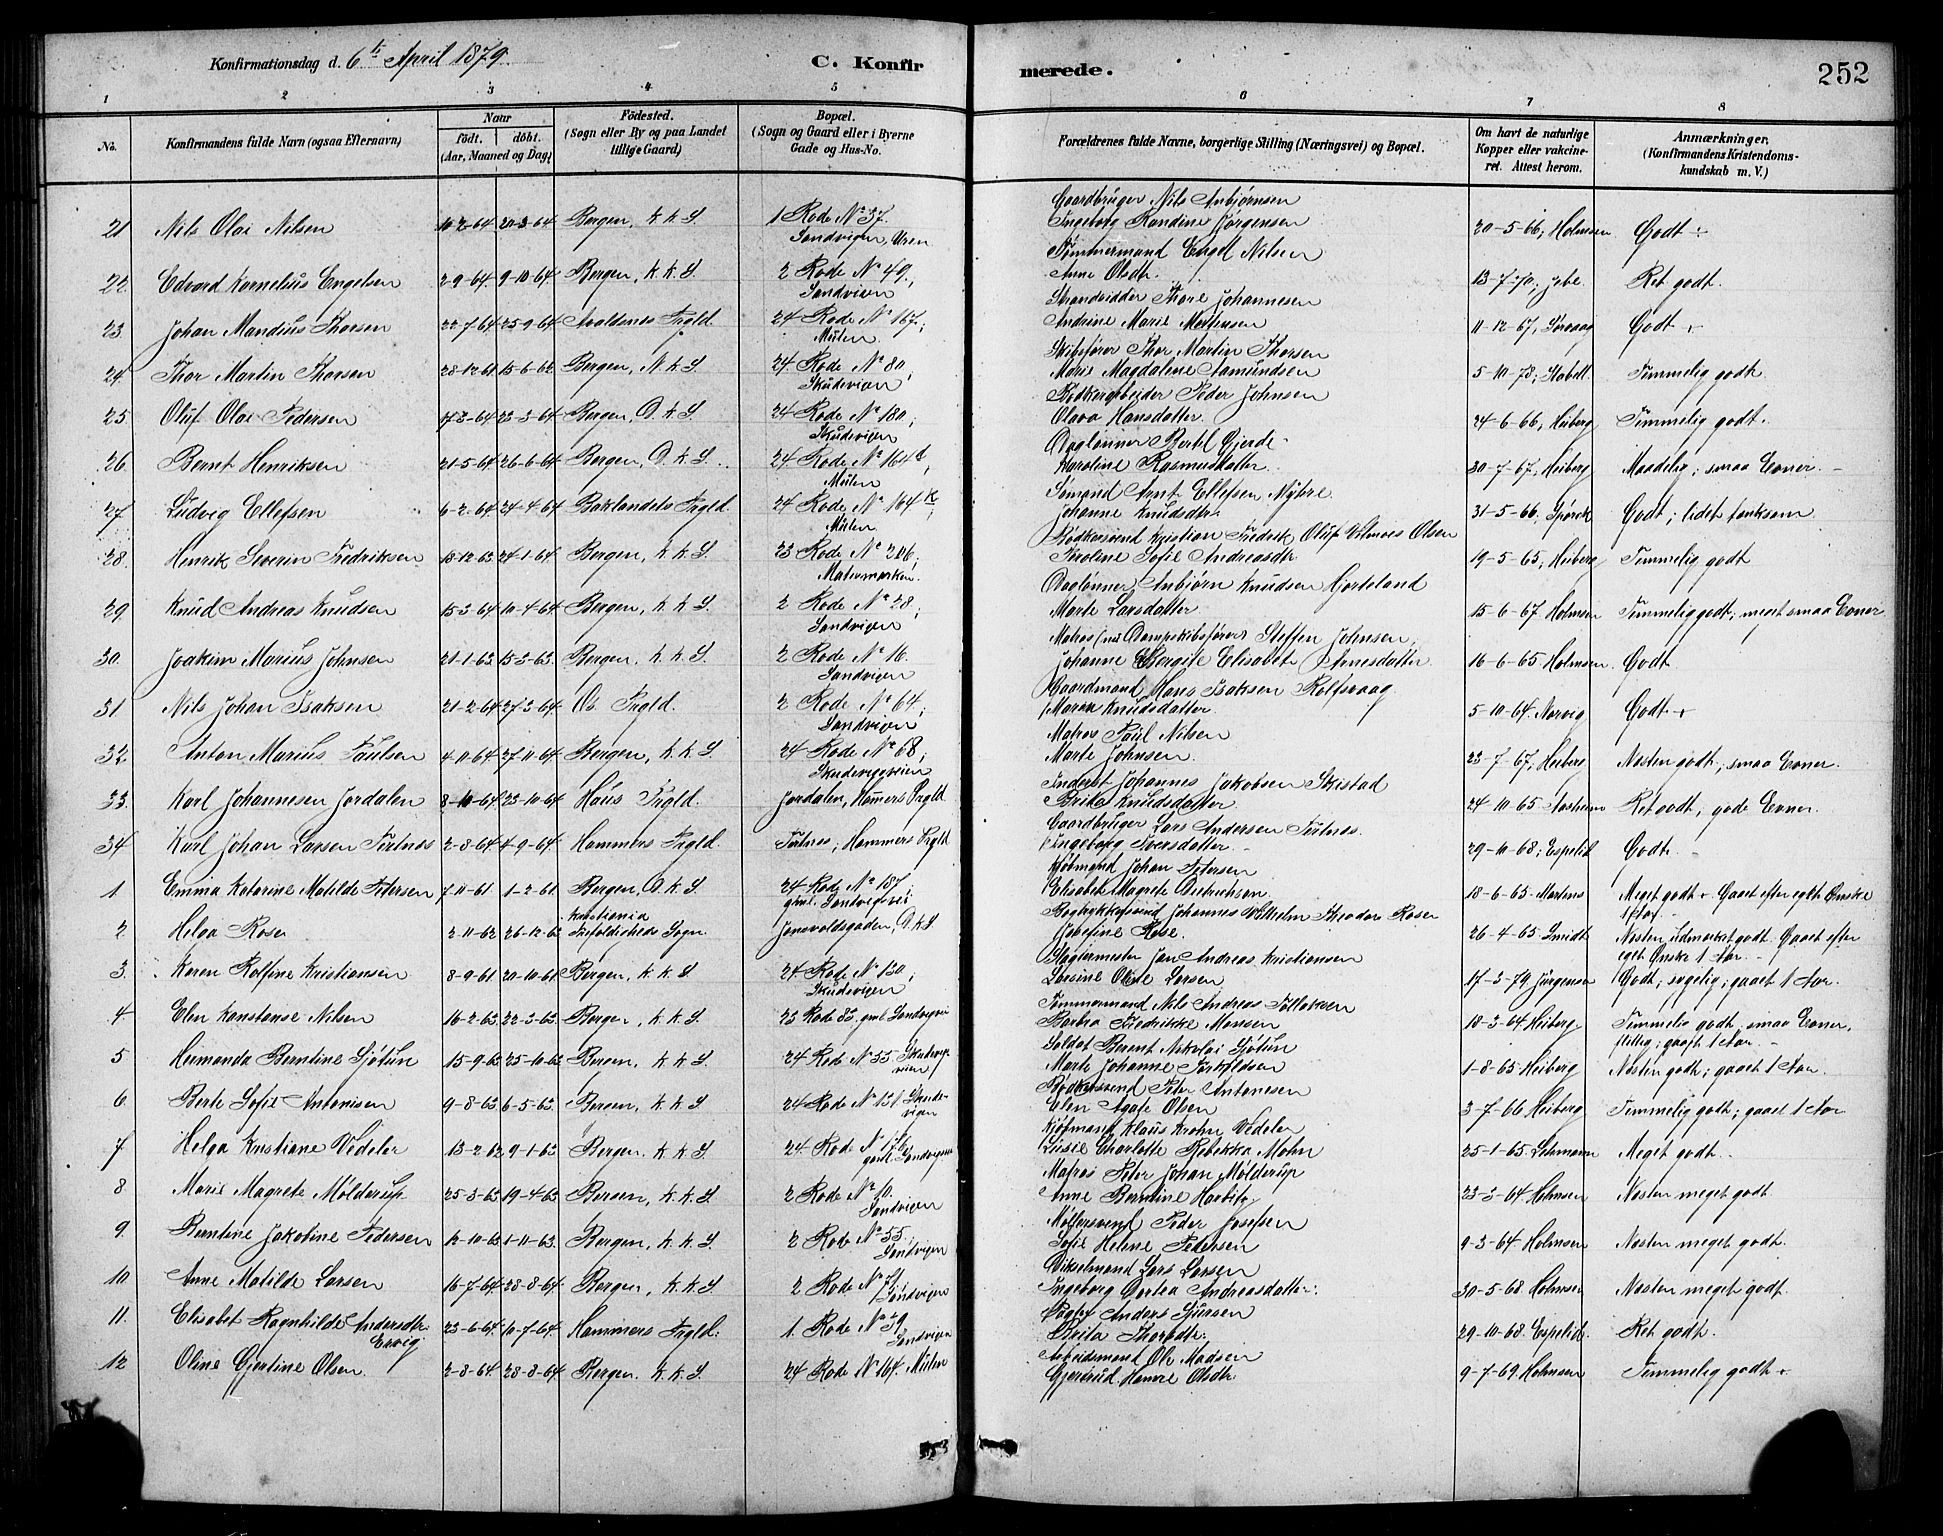 Konfirmationsdag d. 6te April 1879. C. Konfirmerede. 252
1 2 3 4 5 6 7 8
No. Konfirmandens fulde Navn (ogsaa Efternavn) Naar födt. döbt. (Aar, Maaned og Dag) Födested. (Sogn eller By og paa Landet tillige Gaard) Bopæl. (Sogn og Gaard eller i Byerne Gade og Hus-No. Forældrenes fulde Navne, borgerlige Stilling (Næringsvei) og Bopæl. Om havt de naturlige Kopper eller vakcineret. Attest herom. Anmærkninger, (Konfirmandens Kristendomskundskab m. V.)
21 Nils Olai Nilsen Bergen, K.k.S. 1 Rode No 37. Sandvigen, Uren Gaardbruger Nils Anbjörnsen
Ingeborg Randine Jörgensen 20-5-66, Holmsen Godt
22. Edvard Kornelius Engelsen 2-9-64 9-10-64 Bergen, K.k.S. 2 Rode No 49, Sandvigen Tömmermand Engel Nilsen
Anne Olsdtr. 13-7-70, Ret godt.
23. Johan Mandius Thorsen 22-7-64 25-9-64 Avaldsnes Prgld 24 Rode No 167, Mülen Strandsidder Thore Johannesen
Andrine Marie Mortensen 11-12-67, Godt
24. Thor Martin Thorsen 28-12-61 15-6-62 Bergen, N.k.S 24 Rode No 80, Skudevigen Skibsförer Thor Martin Thorsen
Marie Magdalene Aamundsen 5-10-78, Stabell Temmelig godt
25. Oluf Olai Pedersen 17-3-64 23-3-64 Bergen, D.k.S 24 Rode No 180, Skudevigen Bödkerarbeider Peder Johnsen
Olava Hansdatter 24-6-66, Heiberg Temmelig godt.
26. Bernt Henriksen 21-5-64 26-6-64 Bergen, D.k.S. 24 Rode No 164 Mülen Daglönner Bertel Gjerde
Karoline Rasmusdatter 30-7-67, Heiberg Maadelig; smaa Evner.
27. Ludvig Ellefsen 6-2-64 24-4-64 Baklandets Prgld. 24 Rode No 164 Mülen Sömand Arnt Ellefsen Myhre
Johanne Knudsdtr. 31-5-66, Godt; lidet tænksom
28. Henrik Severin Fredriksen 18-12-63 24-1-64 Bergen, K.k.S. 23 Rode No 206, Bödkersvend Kristian Fredrik Oluf Olsen
Sofie Andreasdtr 19-5-65, Heiberg Temmelig godt
29. Knud Andreas Knudsen 15-3-64 10-4-64 Bergen, K.k.S. 2 Rode No 28, Sandvigen Daglönner Anbjörn Knudsen Hjorteland
Marte Larsdatter 15-6-67 Holmsen Temmelig godt, meget smaa Evner
30. Joakim Marius Johnsen 21-1-63 15-3-63 Bergen, K.k.S. 2 Rode No 16. Sandvigen Matros (nu Dampskibsförer) Steffen Johnsen
Johanne Bergite Elisabet Arnesdatter 16-6-65 Holmsen. Godt
31 Nils Johan Isaksen 21-2-64 27-3-64 Os Prgld. 2 Rode No 64, Sandvigen Gaardmand Hans Isaksen Rolfsvaag
Maren Knudsdatter. 5-10-64. Norvig Godt
32. Anton Marius Paulsen 4-11-64 27-11-64 Bergen, K.k.S. 24 Rode No 68, Skudevigsveien Matros Paul Nilsen
Marte Johnsen 23-7-67, Heiberg Næsten godt, smaa Evner.
33. Karl Johannesen Jordalen 8-10-64 23-10-64 Haus Prgld. Jordalen, Hammers Prgld Inderst Johannes Jakobsen
Brita Knudsdatter 24-10-65 Ret godt, gode Evner
34 Karl Johan Larsen Tertnes 2-8-64 4-9-64 Hammers Prgld. Tertnes, Hammers Prgld Gaardbruger Lars Andersen Tertnes.
Ingeborg Iversdatter 29-10-68, Espelid Godt.
1 Emma Katarine Matilde Petersen Bergen, D.k.S. 24 Rode No 187, gml. Sandvigsvei Kjöbmand Johan Petersen
Elisabet Magrete Diedrichsen 18-6-65 Martens Meget godt. Gaaet efter eget Ønske 1 Aar.
2 Helga Rosen 2-11-62 26-12-62 Kristiania Trefoldigheds Sogn. Jonsvoldsgaden, D.k.S Bogtrykkersvend Johannes Vilhelm Theodor Rosen
Josefine Rose 26-4-65 Smidt Næsten udmærket godt. Gaaet efter eget Ønske 1 Aar.
3. Karen Rolfine Kristiansen 8-9-61 20-10-61 Bergen, K.k.S. 24. Rode No 130, Skudevigen Slagtermester Jan Andreas Kristiansen
Larsine Oline Larsen 17-3-79 Jürgensen Godt; sygelig; gaaet 1 Aar.
4 Elen Konstanse Nilsen 16-2-63 22-3-63 Bergen, K.k.S. 23 Rode 33. gml. Sandvigsvei Tömmermand Nils Andreas Tollaksen
Barbra Fredrikke Monsen 18-3-64 Heiberg Temmelig godt, smaa Evner, flittig; gaaet 1 Aar.
5 Hermanda Berntine Sjötun 15-9-63 25-10-63 Bergen, K.k.S 24 Rode No 55. Skudevigsveien Soldat Berent Nikolai Sjötun
Marte Johanne Torkildsen 1-8-65 Heiberg Næsten godt; gaaet 1 Aar.
6 Berte Sofie Antonisen 9-8-63 6-5-63 Bergen, K.k.S 24 Rode No 131 Skudevigen Bödkersvend Peter Antonesen
Elen Agate Olsen 3-7-66 Heiberg Temmelig godt; gaaet 1 Aar
7 Helga Kristiane Vedeler 13-2-62 9-1-63 Bergen. K.k.S. 24 Rode No 176 gml. Sandvigsvei Kjöbmand Klaus Krohn Vedeler
Lisie Charlotte Rebekka Mohn 25-1-65 Lehmann Meget godt.
8 Marie Magrete Mölderup 25-3-63 19-4-63 Bergen, K.k.S 2 Rode No 10. Sandvigen Matros Peter Johan Mölderup
Anne Berntine 23-3-64 Holmsen Næsten meget godt
9. Berntine Jakobine Pedersen 12-10-63 1-11-63. Bergen, K.k.S. 2 Rode No 55. Sandvigen Möllersvend Peder Josefsen
Sofie Helene Pedersen 9-3-64 Holmsen Næsten meget godt.
10 Anne Matilde Larsen 16-7-64 28-8-64 Bergen, K.k.S. 2 Rode No 71, Sandvigen Vikselmand Lars Larsen
Ingeborg Dortea Andreasdatter. 30-5-68 Holmsen Næsten meget godt.
11. Elisabet Ragnhilde Andersdtr. Ervig 23-6-64 10-7-64 Hammers Prgld. 1. Rode No 39 Sandvigen Anders Sjursen
Brita Thorsdtr. 29-10-68. Espelid. Ret godt.
12 Oline Gjertine Olsen. 2-8-64. 28-8-64 Bergen. K.k.S. 24 Rode No 164. Mülen Arbeidsmand Ole Madsen
Gjertrud Olsdtr 9-7-69. Holmsen Temmelig godt.